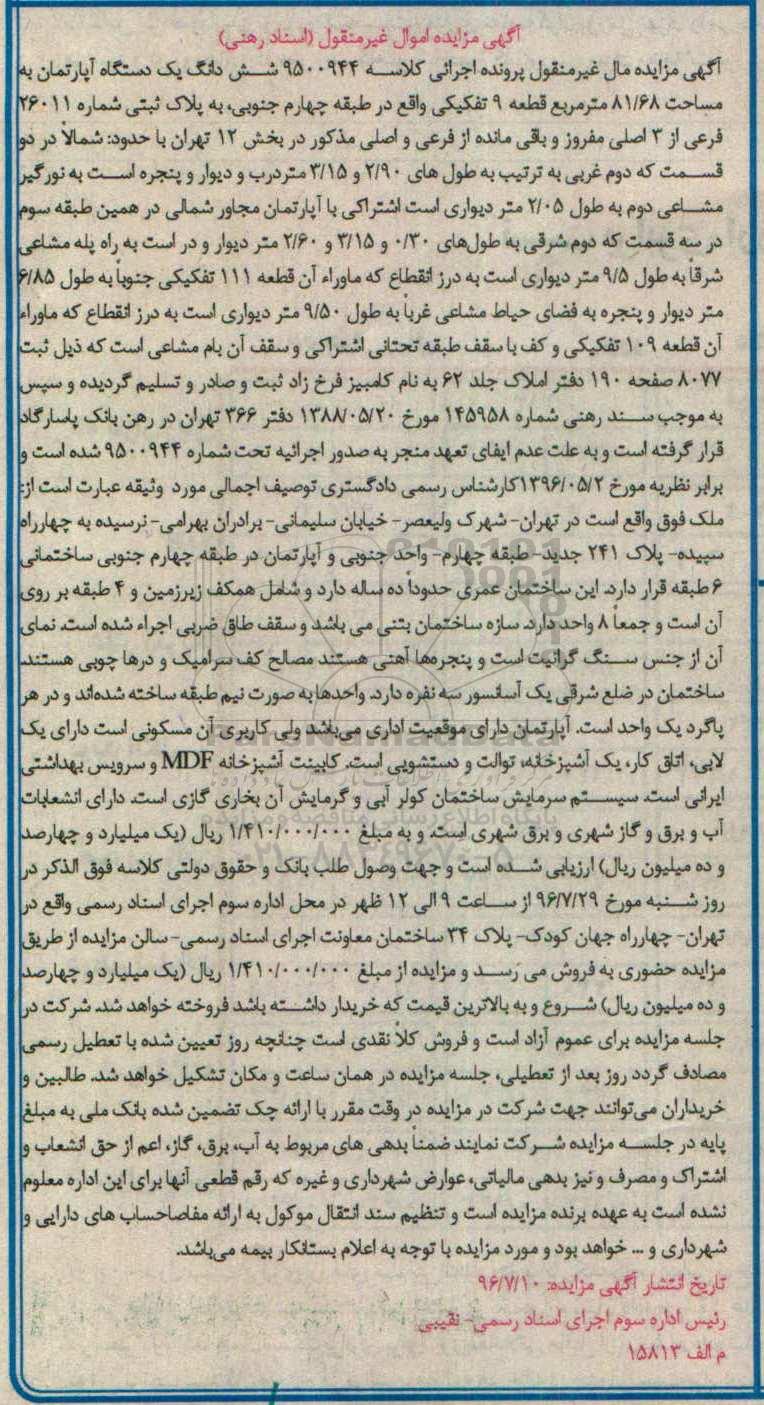 آگهی مزایده اموال غیرمنقول (اسناد رهنی)
آگهی مزایده مال غیرمنقول پرونده اجرائی کلاسه ۹۵۰۰۹۴۴ شش دانگ یک دستگاه آپارتمان به
مساحت ۸۱/۶۸ مترمربع قطعه ۹ تفکیکی واقع در طبقه چهارم جنوبی، به پلاک ثبتی شماره ۲۶۰۱۱
فرعی از ۳ اصلی مفروز و باقی مانده از فرعی و اصلی مذکور در بخش ۱۲ تهران با حدود: شمالاً در دو
قسمت که دوم غربی به ترتیب به طول های ۲/۹۰ و ۳/۱۵ متردرب و دیوار و پنجره است به نورگیر
مشاعی دوم به طول ۲/۰۵ متر دیواری است اشتراکی با آپارتمان مجاور شمالی در همین طبقه سوم
در سه قسمت که دوم شرقی به طول‌های ۰/۳۰ و ۳/۱۵ و ۲/۶۰ متر دیوار و در است به راه پله مشاعی
شرقاً به طول ۹/۵ متر دیواری است به درز انقطاع که ماوراء آن قطعه ۱۱۱ تفکیکی جنوباً به طول ۶/۸۵
متر دیوار و پنجره به فضای حیاط مشاعی غرباً به طول ۹/۵۰ متر دیواری است به درز انقطاع که ماوراء
آن قطعه ۱۰۹ تفکیکی و کف با سقف طبقه تحتانی اشتراکی و سقف آن بام مشاعی است که ذیل ثبت
۸۰۷۷ صفحه ۱۹۰ دفتر املاک جلد ۶۲ به نام کامبیز فرخ زاد ثبت و صادر و تسلیم گردیده و سپس
به موجب سند رهنی شماره ۱۴۵۹۵۸ مورخ ۱۳۸۸/۰۵/۲۰ دفتر ۳۶۶ تهران در رهن بانک پاسارگاد
قرار گرفته است و به علت عدم ایفای تعهد منجر به صدور اجرائیه تحت شماره ۹۵۰۰۹۴۴ شده است و
برابر نظریه مورخ ۱۳۹۶/۰۵/۲کارشناس رسمی دادگستری توصیف اجمالی مورد وثیقه عبارت است از:
ملک فوق واقع است در تهران- شهرک ولیعصر- خیابان سلیمانی- برادران بهرامی- نرسیده به چهارراه
سپیده- پلاک ۲۴۱ جدید- طبقه چهارم- واحد جنوبی و آپارتمان در طبقه چهارم جنوبی ساختمانی
۶ طبقه قرار دارد. این ساختمان عمری حدوداً ده ساله دارد و شامل همکف زیرزمین و ۴ طبقه بر روی
آن است و جمعاً ۸ واحد دارد. سازه ساختمان بتنی می باشد و سقف طاق ضربی اجراء شده است. نمای
آن از جنس سنگ گرانیت است و پنجره‌ها آهنی هستند مصالح کف سرامیک و درها چوبی هستند.
ساختمان در ضلع شرقی یک آسانسور سه نفره دارد. واحدها به صورت نیم طبقه ساخته شده‌اند و در هر
پاگرد یک واحد است. آپارتمان دارای موقعیت اداری می‌باشد ولی کاربری آن مسکونی است دارای یک
لابی، اتاق کار، یک آشپزخانه، توالت و دستشویی است. کابینت آشپزخانه MDF و سرویس بهداشتی
ایرانی است. سیستم سرمایش ساختمان کولر آبی و گرمایش آن بخاری گازی است. دارای انشعابات
آب و برق و گاز شهری و برق شهری است. و به مبلغ ۱/۴۱۰/۰۰۰/۰۰۰ ریال (یک میلیارد و چهارصد
و ده میلیون ریال) ارزیابی شده است و جهت وصول طلب بانک و حقوق دولتی کلاسه فوق الذکر در
روز شنبه مورخ ۹۶/۷/۲۹ از ساعت ۹ الی ۱۲ ظهر در محل اداره سوم اجرای اسناد رسمی واقع در
تهران- چهارراه جهان کودک- پلاک ۳۴ ساختمان معاونت اجرای اسناد رسمی- سالن مزایده از طریق
مزایده حضوری به فروش می رسد و مزایده از مبلغ ۱/۴۱۰/۰۰۰/۰۰۰ ریال (یک میلیارد و چهارصد
و ده میلیون ریال) شروع و به بالاترین قیمت که خریدار داشته باشد فروخته خواهد شد. شرکت در
جلسه مزایده برای عموم آزاد است و فروش کلاً نقدی است چنانچه روز تعیین شده با تعطیل رسمی
مصادف گردد روز بعد از تعطیلی، جلسه مزایده در همان ساعت و مکان تشکیل خواهد شد. طالبین و
خریداران می‌توانند جهت شرکت در مزایده در وقت مقرر با ارائه چک تضمین شده بانک ملی به مبلغ
پایه در جلسه مزایده شرکت نمایند ضمناً بدهی های مربوط به آب، برق، گاز، اعم از حق انشعاب و
اشتراک و مصرف و نیز بدهی مالیاتی، عوارض شهرداری و غیره که رقم قطعی آنها برای این اداره معلوم
نشده است به عهده برنده مزایده است و تنظیم سند انتقال موکول به ارائه مفاصاحساب های دارایی و
شهرداری و ... خواهد بود و مورد مزایده با توجه به اعلام بستانکار بیمه می‌باشد.
تاریخ انتشار آگهی مزایده: ۹۶/۷/۱۰
رئیس اداره سوم اجرای اسناد رسمی- نقیبی
م الف ۱۵۸۱۳